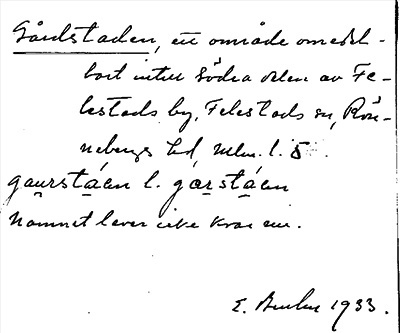 Gårdstaden, ett område omedel-
bart intill södra delen av Fe-
lestads by, Felestads sn, Rön-
nebergs hd, Mlm. l. 5.
gaurstáen l. gœrstáen
Namnet lever icke kvar nu.
E. 1933.